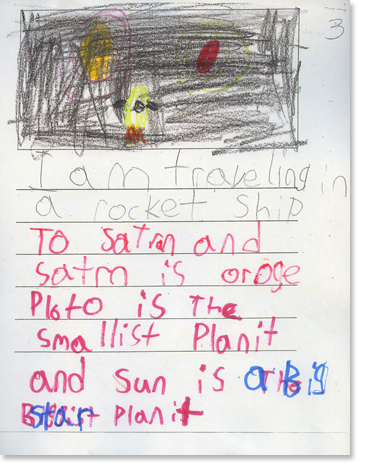 3
I am traveling in
a rocket ship
To Satrn and
satrn is oroge
Ploto is The
smallist Planit
and sun is a Big
star Planit